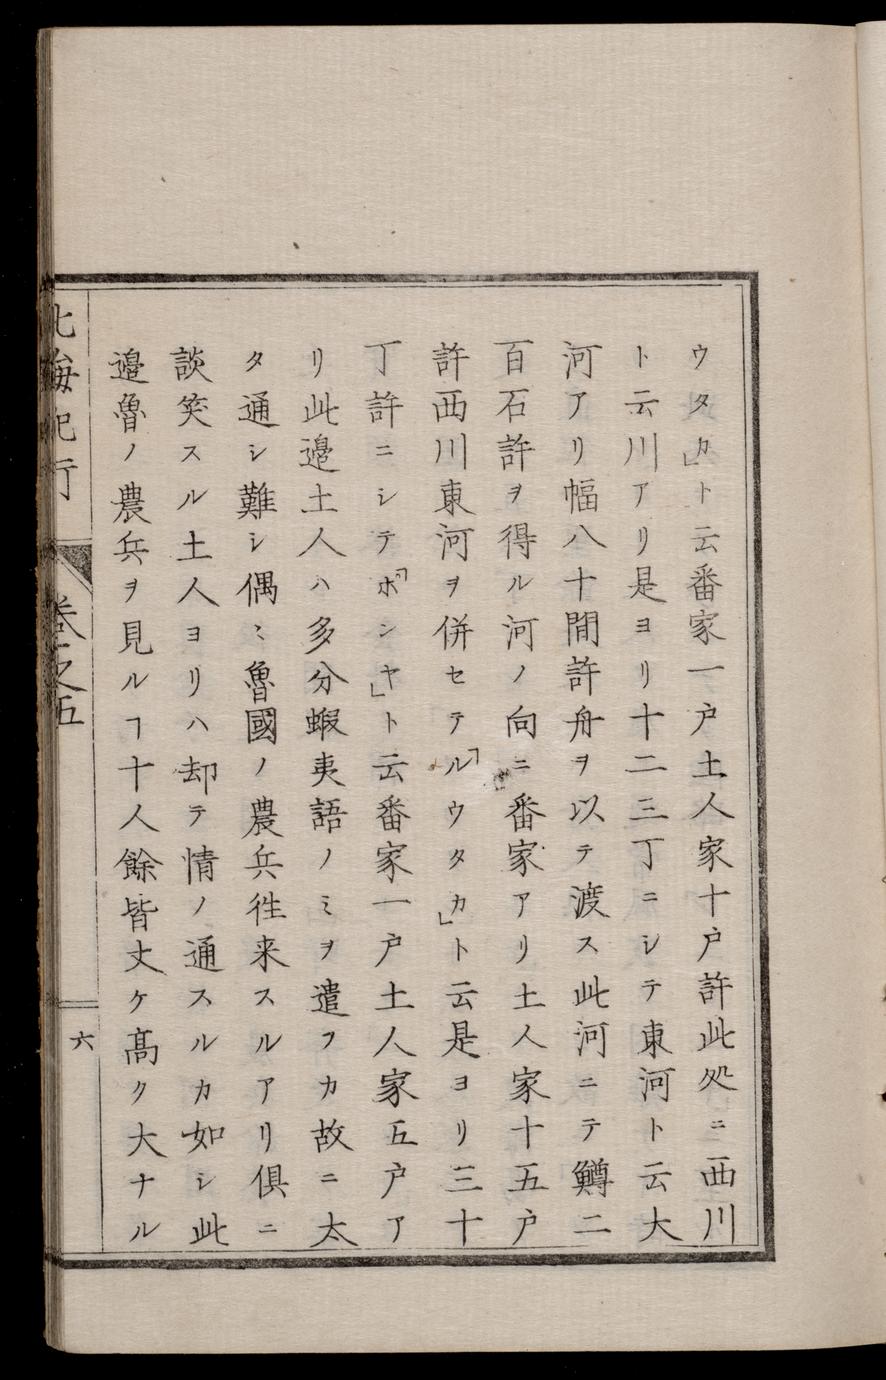 ウタカ」ト云番家一戸土人家十戸許此処ニ西川
ト云川アリ是ヨリ十二三丁ニシテ東河ト云大
河アリ幅八十間許舟ヲ以テ渡ス此河ニテ鱒二
百石許ヲ得ル河ノ向ニ番家アリ土人家十五戸
許西川東河ヲ併セテ「ルウタカ」ト云是ヨリ三十
丁許ニシテ「ホンヤ」ト云番家一戸土人家五戸ア
リ此邉土人ハ多分蝦夷語ノミヲ遣フカ故ニ太
タ通シ難シ偶〻魯國ノ農兵徃来スルアリ俱ニ
談笑スル土人ヨリハ却テ情ノ通スルカ如シ此
邉魯ノ農兵ヲ見ルヿ十人餘皆丈ケ髙ク大ナル
北海紀行 巻之五 六